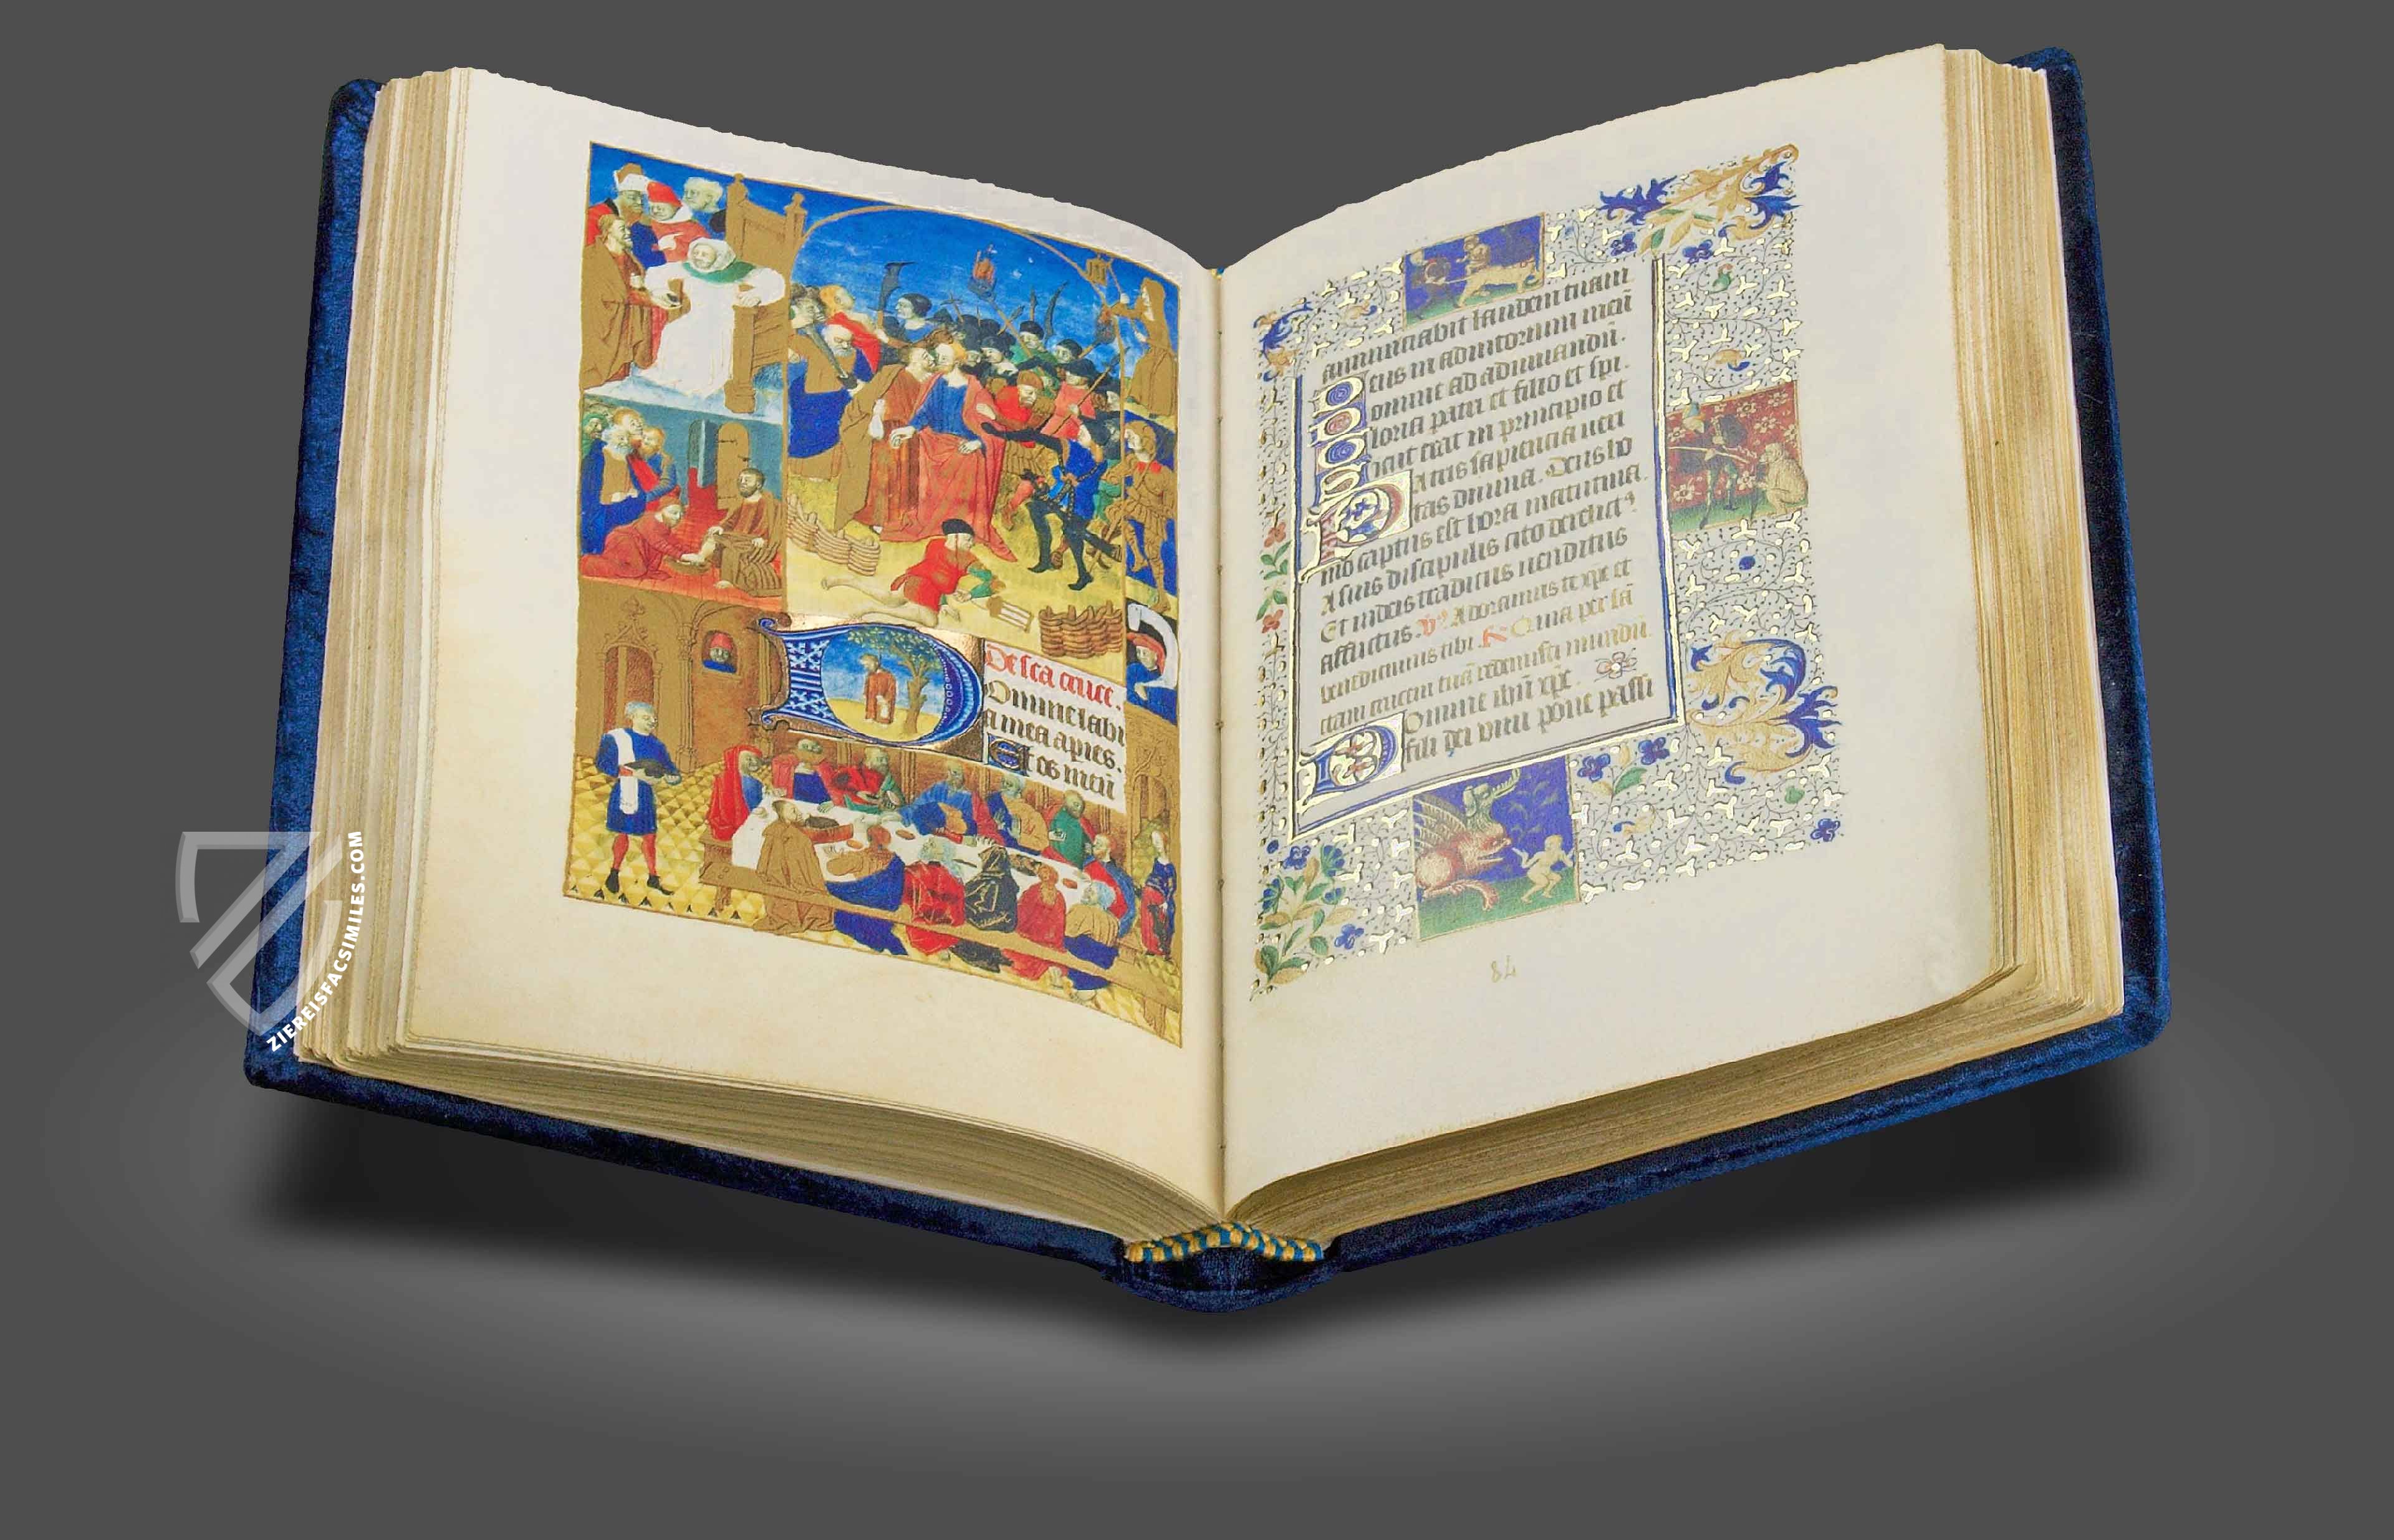 De sc̃a cruce.
Omine labi
a mea apies.
Et os meũ
annunciabit laudem tuam
Deus in adiutorium meũ
Domine ad adiuuandũ.
Gloria patri et filio et spi.
Sicut erat in principio et
Patris sapiencia ueri
tas diuina. Deus ho
mo captus est hora matutina.
A suis discipulis cito derelict9
Et iudeis traditus uenditus
afflictus. V9 Adoramus te xp̃e et
benedicimus tibi. R Quia per sã
ctam crucem tuã redemisti mundũ.
Domine ihũ xp̃e
fili dei uiui pone passi
84
ZIEREISFACSIMILES.COM